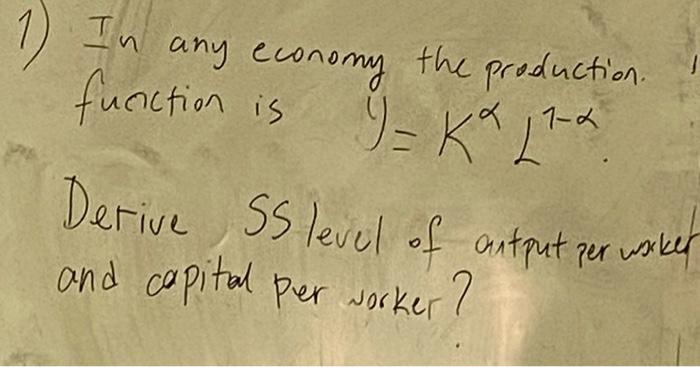 1) In any economy the production.
function is y = K^α L^1-α.
Derive SS level of output per worker
and capital per worker?